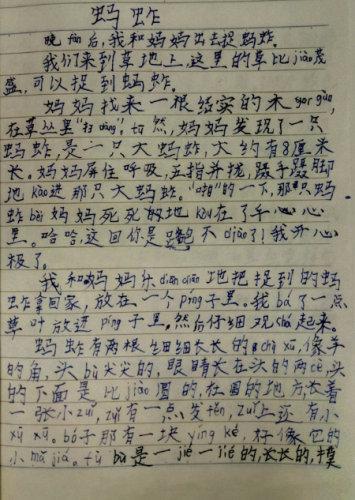 蚂蚱
晚fàn后,我和妈妈出去捉蚂蚱。
我们来到草地上,这里的草比jiào茂
盛,可以捉到蚂蚱。
妈妈找来一根结实的木gùn,
在草丛里"扫dàng"。忽然,妈妈发现了一只
蚂蚱,是一只大蚂蚱,大约有8厘米
长。妈妈屏住呼吸,五指并拢,蹑手蹑脚
地kào进那只大蚂蚱。"啪"的一下,那只蚂
蚱bèi妈妈死死地kòu在了手心
里。哈哈,这回你是跑不diào了!我开心
极了。
我和妈妈乐diān diān地把捉到的蚂
蚱拿回家,放在一个píng子里。我bá了一点
草叶放进píng子里。然后仔细观chá起来。
蚂蚱有两根细细长长的chù xū,像羊
的角,头bù尖尖的,眼睛长在头的两cè,头
的下面是比jiào圆的,在圆的地方,长着
一张小zuǐ,zuǐ有一点发tén,zuǐ上还有小
xū xū。bó子那有一块yìng ké,好像它的
小mǎ jiǎ。fù bù是一jié一jié的,长长的,摸